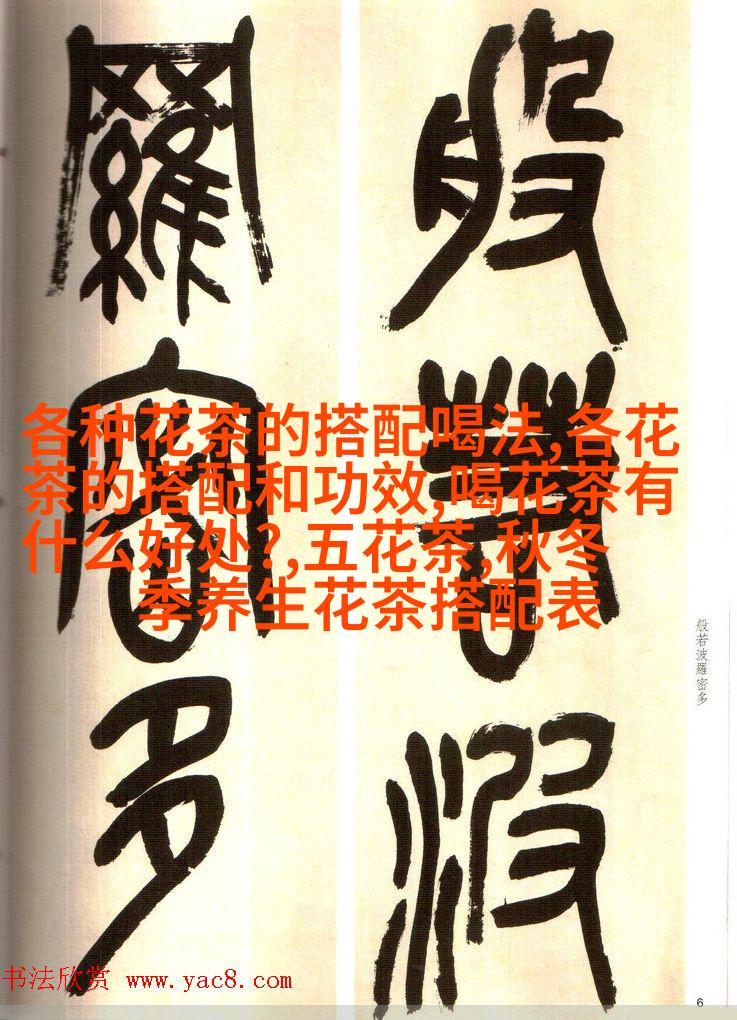 般若波
羅密多
各种花茶的搭配喝法,各花
茶的搭配和功效,喝花茶有
什么好处?,五花茶,秋冬
季养生花茶搭配表
般若波羅密多
书法欣赏 www.yac8.com
6